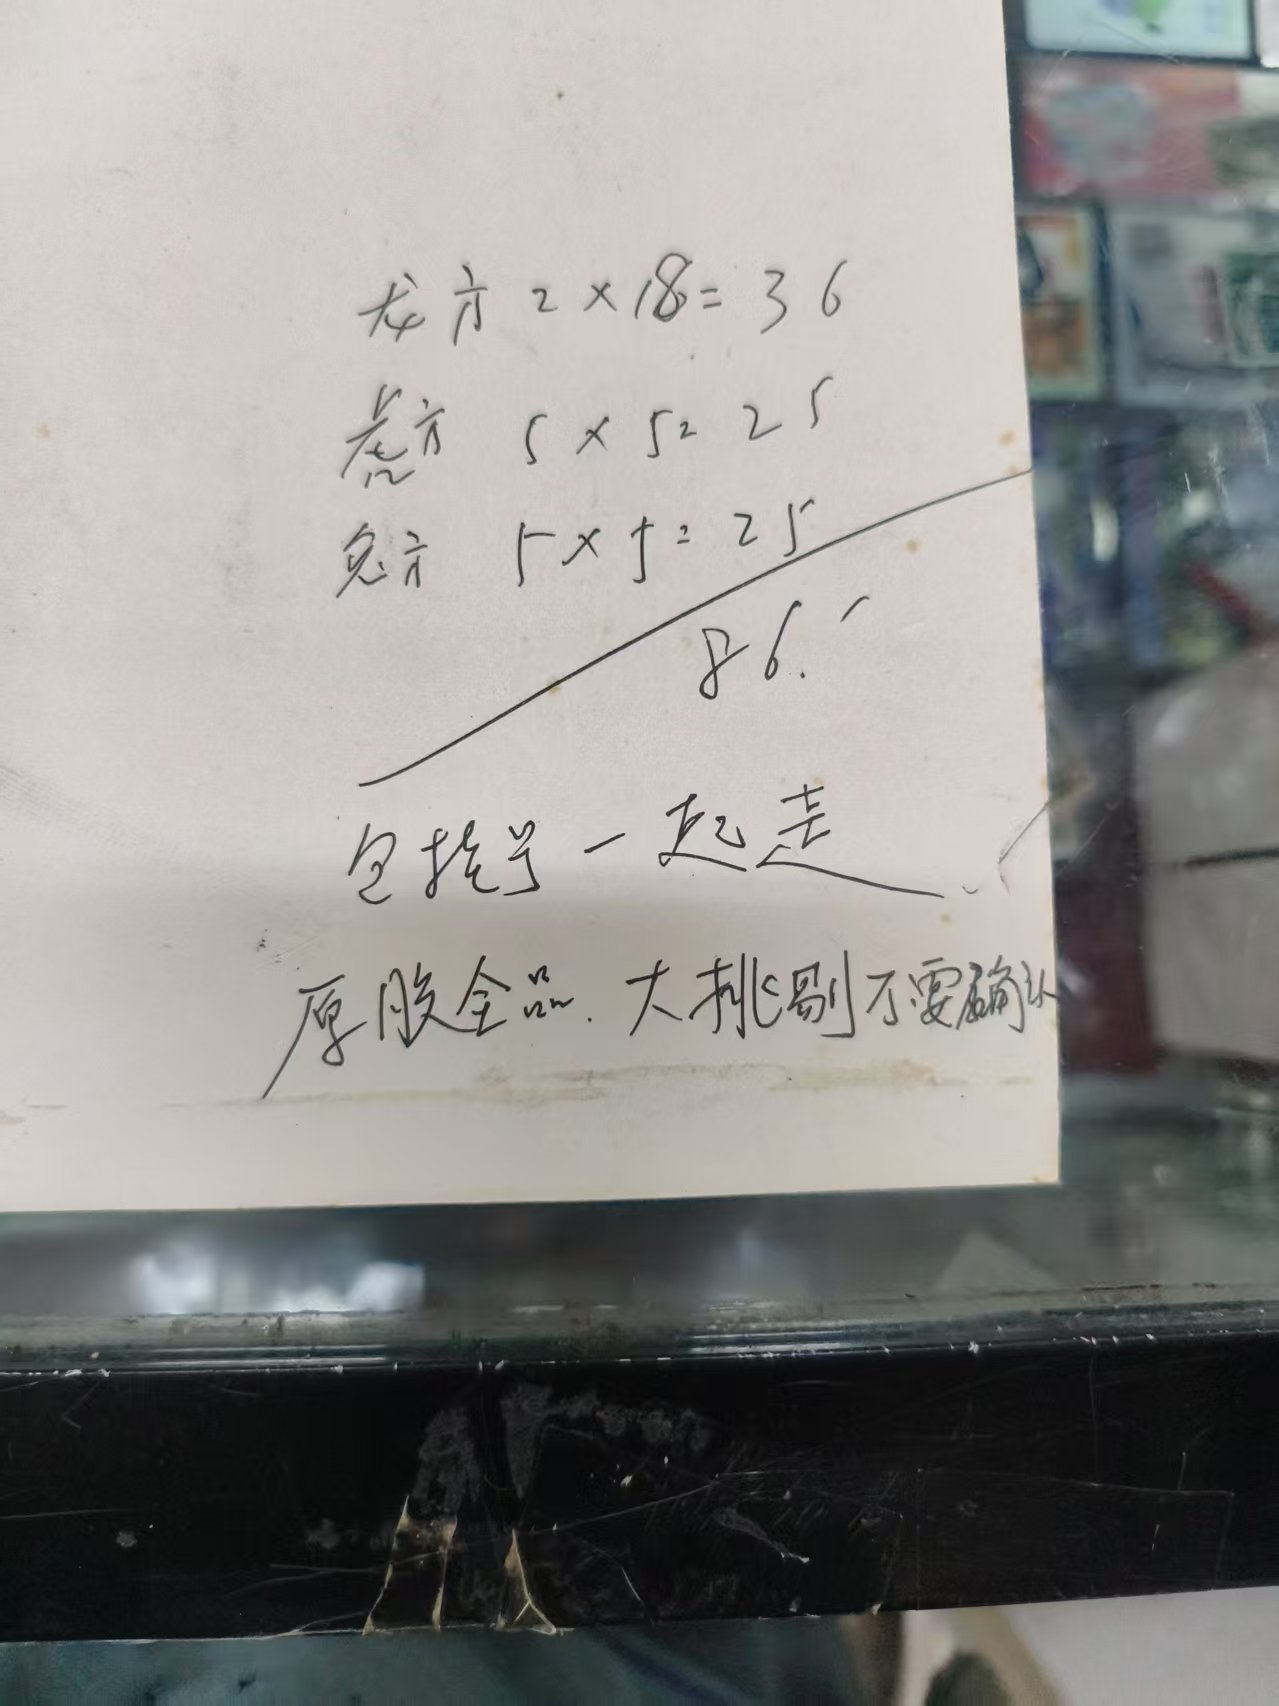 龙方 2×18=36
虎方 5×5=25
兔方 5×5=25
86.
包挂号一起走
厚胶全品.大挑剔不要确认